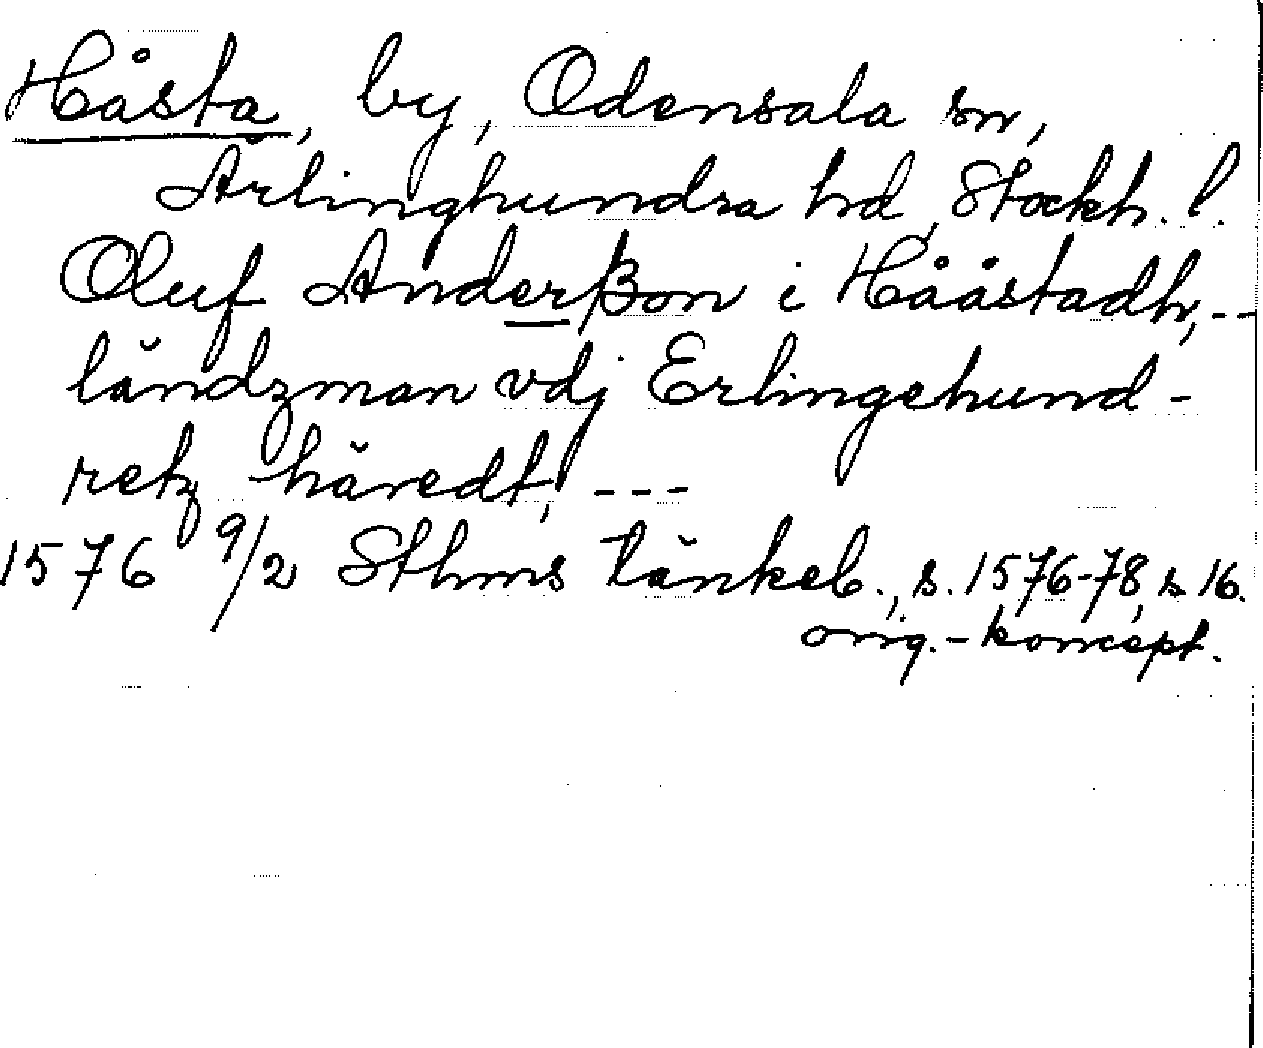 Håsta, by, Odensala sn,
Ärlinghundra hd, Stockh. l.
Oluf Anderßon i Hååstadh, --
ländzman vdj Erlingehund-
retz häredt, ---
1576 9/2 Sthms tänkeb., s. 1576-78, s. 16.
orig.-koncept.